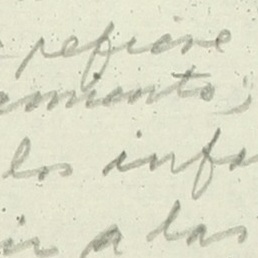 refiere
amiento;
los info
ir a las